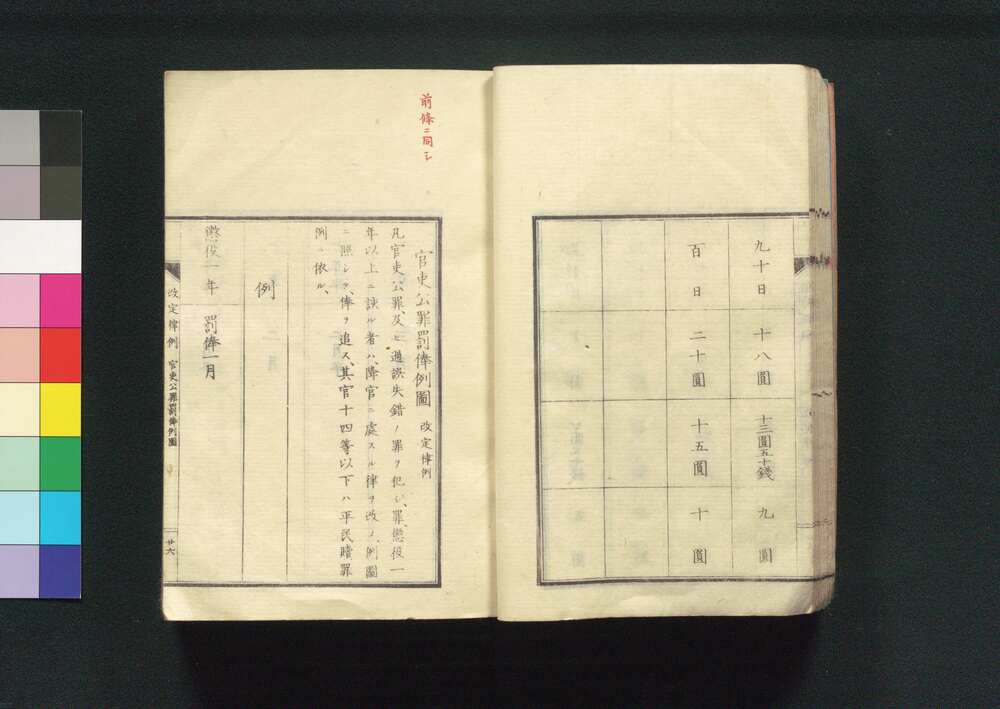 九十日 十八圓 十三圓五十錢 九圓
百日 二十圓 十五圓 十圓
前條ニ同シ
官吏公罪罰俸例圖 改定律例
凡官吏公罪及ヒ過誤失錯ノ罪ヲ犯シ、罪、懲役一
年以上ニ該ル者ハ、降官ニ處スル律ヲ改メ、例圖
ニ照シテ、俸ヲ追ス、其官十四等以下ハ平民贖罪
例ニ依ル、
例
懲役一年 罰俸一月
改定律例 官吏公罪罰俸例圖
廿六